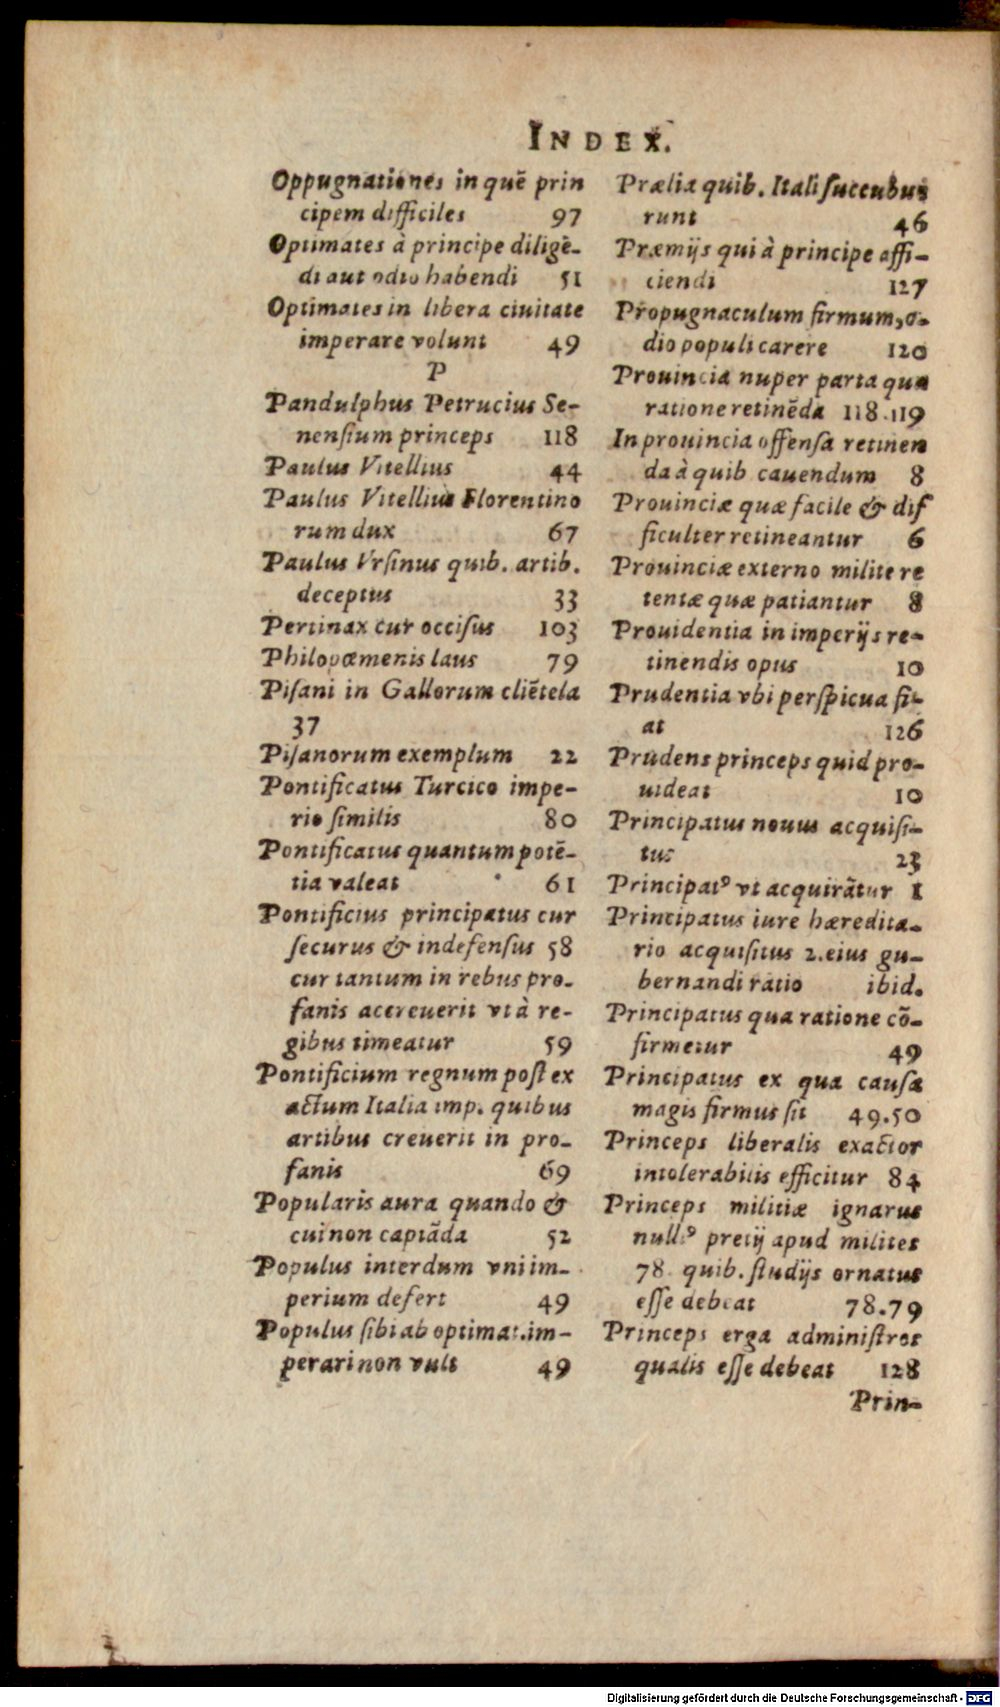 INDEX.
Oppugnationes in quē prin
cipem difficiles 97
Optimates à principe diligē-
di aut odio habendi 51
Optimates in libera ciuitate
imperare volunt 49
P
Pandulphus Petrucius Se-
nenſium princeps 118
Paulus Vitellius 44
Paulus Vitellius Florentino
rum dux 67
Paulus Vrſinus quib. artib.
deceptus 33
Pertinax cur occiſus 103
Philopœmenis laus 79
Piſani in Gallorum cliētela
37
Piſanorum exemplum 22
Pontificatus Turcico impe-
rio ſimilis 80
Pontificatus quantum potē-
tia valeat 61
Pontificius principatus cur
ſecurus & indefenſus 58
cur tantum in rebus pro-
fanis accreuerit vt à re-
gibus timeatur 59
Pontificium regnum poſt ex
actum Italia imp. quibus
artibus creuerit in pro-
fanis 69
Popularis aura quando &
cui non captāda 52
Populus interdum vni im-
perium defert 49
Populus ſibi ab optimat. im-
perari non vult 49
Prælia quib. Itali ſuccubue
runt 46
Præmijs qui à principe affi-
ciendi 127
Propugnaculum firmum, o-
dio populi carere 120
Prouincia nuper parta qua
ratione retinēda 118.119
In prouincia offenſa retinen
da à quib cauendum 8
Prouinciæ quæ facile & dif
ficulter retineantur 6
Prouinciæ externo milite re
tentæ quæ patiantur 8
Prouidentia in imperijs re-
tinendis opus 10
Prudentia vbi perſpicua fi-
at 126
Prudens princeps quid pro-
uideat 10
Principatus nouus acquiſi-
tus 23
Principatꝰ vt acquirātur 1
Principatus iure hæredita-
rio acquiſitus 2. eius gu-
bernandi ratio ibid.
Principatus qua ratione cō-
firmetur 49
Principatus ex qua cauſa
magis firmus ſit 49.50
Princeps liberalis exactor
intolerabilis efficitur 84
Princeps militiæ ignarus
nulliꝰ pretij apud milites
78. quib. ſtudijs ornatus
eſſe debeat 78.79
Princeps erga adminiſtros
qualis eſſe debeat 128
Prin-
Digitalisierung gefördert durch die Deutsche Forschungsgemeinschaft - DFG